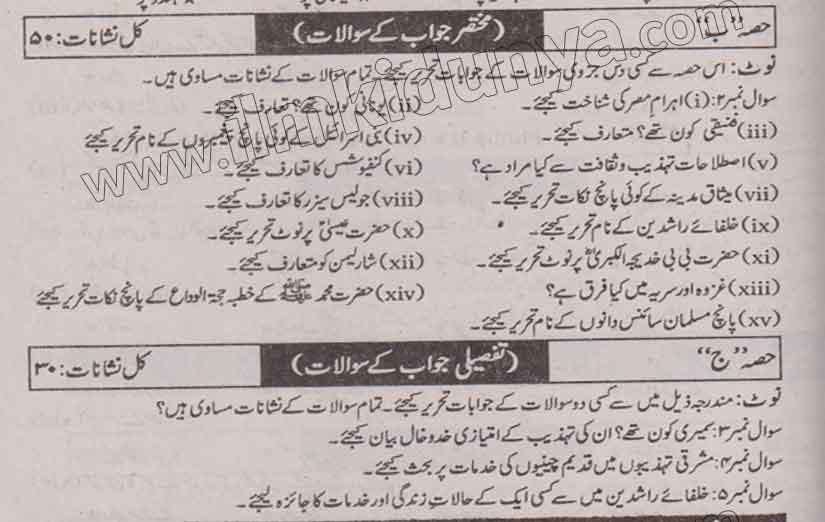 حصہ ”ب“ (مختصر جواب کے سوالات) کل نشانات: ۵۰
نوٹ: اس حصہ سے کسی دس جزوی سوالات کے جوابات تحریر کیجئے۔ تمام سوالات کے نشانات مساوی ہیں۔
سوال نمبر۲: (i) اہرامِ مصر کی شناخت کیجئے۔ (ii) یونانی کون تھے؟ تعارف کیجئے۔
(iii) فنیقی کون تھے؟ متعارف کیجئے۔ (iv) بنی اسرائیل کے کوئی پانچ پیغمبروں کے نام تحریر کیجئے
(v) اصطلاحات تہذیب و ثقافت سے کیا مراد ہے؟ (vi) کنفیوشس کا تعارف کیجئے۔
(vii) میثاق مدینہ کے کوئی پانچ نکات تحریر کیجئے۔ (viii) جولیس سیزر کا تعارف کیجئے۔
(ix) خلفائے راشدین کے نام تحریر کیجئے۔ (x) حضرت عیسیٰؑ پر نوٹ تحریر کیجئے۔
(xi) حضرت بی بی خدیجۃ الکبریٰؓ پر نوٹ تحریر کیجئے۔ (xii) شارلیمن کو متعارف کیجئے۔
(xiii) غزوہ اور سریہ میں کیا فرق ہے؟ (xiv) حضرت محمد ﷺ کے خطبہ حجۃ الوداع کے پانچ نکات تحریر کیجئے
(xv) پانچ مسلمان سائنس دانوں کے نام تحریر کیجئے۔
حصہ ”ج“ (تفصیلی جواب کے سوالات) کل نشانات: ۳۰
نوٹ: مندرجہ ذیل میں سے کسی دو سوالات کے جوابات تحریر کیجئے۔ تمام سوالات کے نشانات مساوی ہیں؟
سوال نمبر۳: سمیری کون تھے؟ ان کی تہذیب کے امتیازی خدوخال بیان کیجئے۔
سوال نمبر۴: مشرقی تہذیبوں میں قدیم چینیوں کی خدمات پر بحث کیجئے۔
سوال نمبر۵: خلفائے راشدین میں سے کسی ایک کے حالاتِ زندگی اور خدمات کا جائزہ لیجئے۔
www.ilmkidunya.com